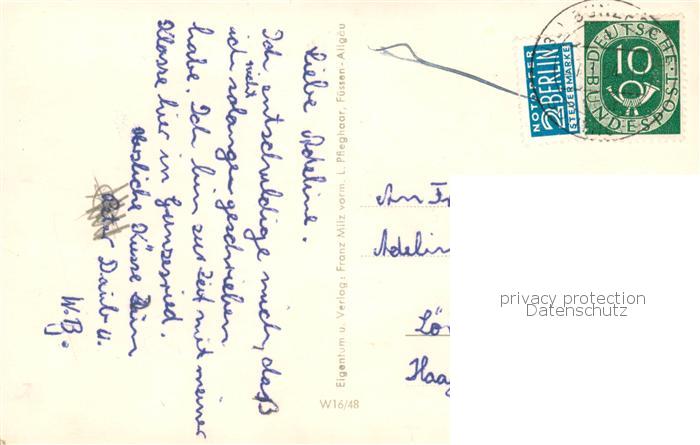 Liebe Adeline.
Ich entschuldige mich, daß
ich solange nichts geschrieben
habe. Ich bin zur Zeit mit meiner
Klasse hier in Gunzesried.
Herzliche Küsse Dein
Peter Daub u.
W. B.
Eigentum u. Verlag: Franz Milz vorm. L. Pfleghaar, Füssen-Allgäu
W16/48
NOTOPFER
2 BERLIN
STEUERMARKE
DEUTSCHE
BUNDESPOST
10
An Fr
Adelin
Lör
Haag
privacy protection
Datenschutz